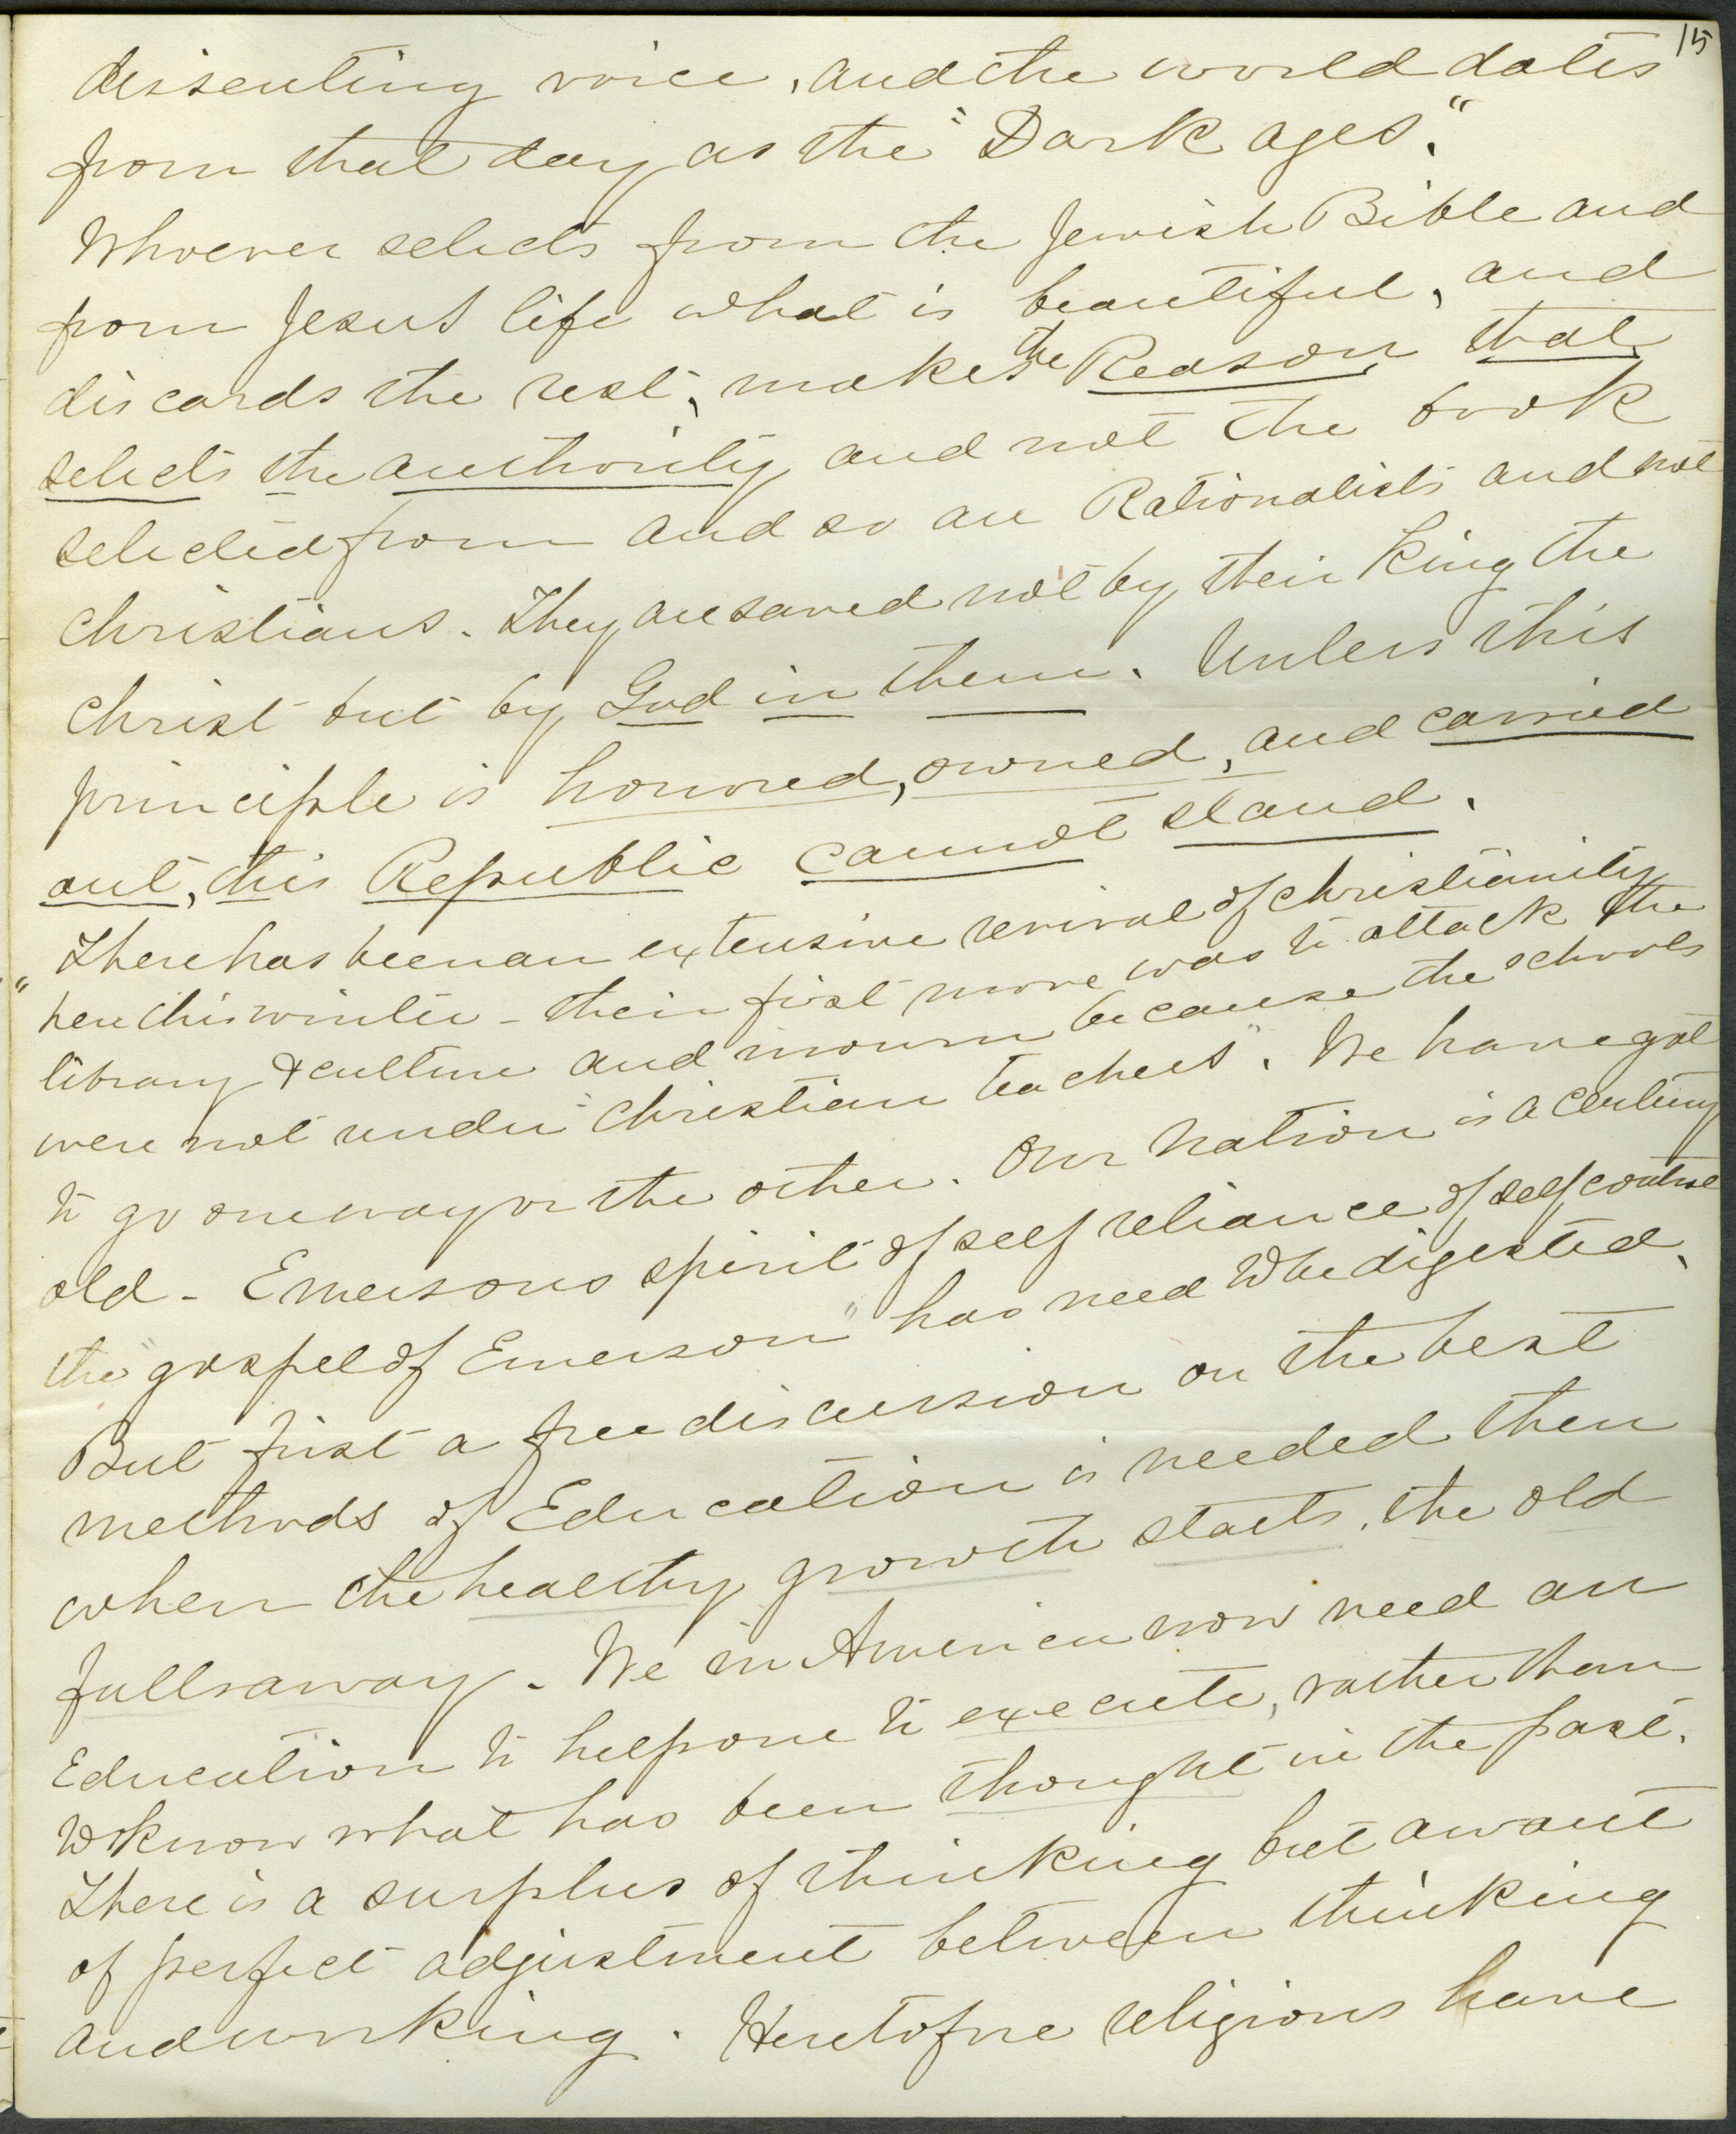 15
dissenting voice, and the world dates
from that day as the "Dark ages."
Whoever selects from the Jewish Bible and
from Jesus life what is beautiful, and
discards the rest, makes the Reason that
selects the authority and not the book
selected from and so are Rationalists and not
Christians. They are saved not by their King the
Christ but by God in them. Unless this
principle is honored, owned, and carried
out, this Republic cannot stand.
"There has been an extensive revival of Christianity
here this winter - their first move was to attack the
library & culture and mourn because the schools
were not under "Christian teachers". We have got
to go one way or the other. Our Nation is a century
old - Emersons spirit of self reliance of self control
the "gospel of Emerson" has need to be digested.
But first a free discussion on the best
methods of Education is needed then
when the healthy growth starts, the old
falls away. We in America now need an
Education to help one to execute, rather than
to know what has been thought in the past.
There is a surplus of thinking but a want
of perfect adjustment between thinking
and working. Heretofore religions have